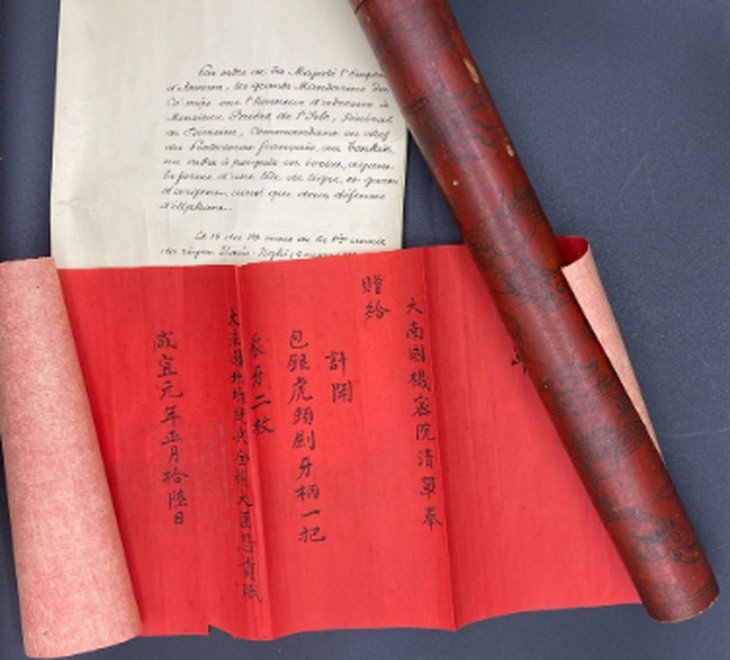 Par ordre de Sa Majesté l'Empere
d'Annam, les grands Mandarins du
Co-mật ont l'honneur d'adresser à
Monsieur Brière de l'Isle, Général
de Division, Commandant en chef
du Protectorat français au Tonkin,
un sabre à poignée en ivoire, ayant
la forme d'une tête de tigre, et garni
d'argent, ainsi que deux défenses
d'éléphant.
Le 16 du 1er mois de la 1ère année
du règne
大南國機密院清單奉
贈給
計開
包銀虎頭劍牙柄一把
象牙二枚
大法國北圻統兵全權大臣
咸宜元年正月拾陸日